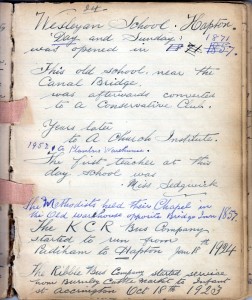 34
Wesleyan School. Hapton.
(Day and Sunday) 1871
was opened in 1857.
This old school, near the
Canal Bridge,
was afterwards converted
to A Conservative Club.
Years later
to A Church Institute.
1952 A Warehouse.
The first teacher at this
day school was
Miss Sedgwick
The Methodists held their Chapel in
the Old warehouse opposite Bridge Inn 1857
The K C R Bus Company
started to run from
Padiham to Hapton Jan 18th 1924
The Ribble Bus Company started service
from Burnley Cattle Market to
at Accrington Oct 18th 1923